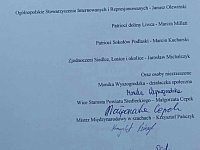 Ogólnopolskie Stowarzyszenie Internowanych i Represjonowanych - Janusz Olewiński
Patrioci doliny Liwca - Marian Miller
Patrioci Sokołów Podlaski - Marcin Kucharski
Zjednoczeni Siedlce, Łosice i okolice - Jarosław Michalczyk
Oraz osoby niezrzeszone
Monika Wyszogrodzka - działaczka społeczna
Monika Wyszogrodzka
Wice Starosta Powiatu Siedleckiego - Małgorzata Cepek
Małgorzata Cepek
Mistrz Międzynarodowy w szachach - Krzysztof Pańczyk